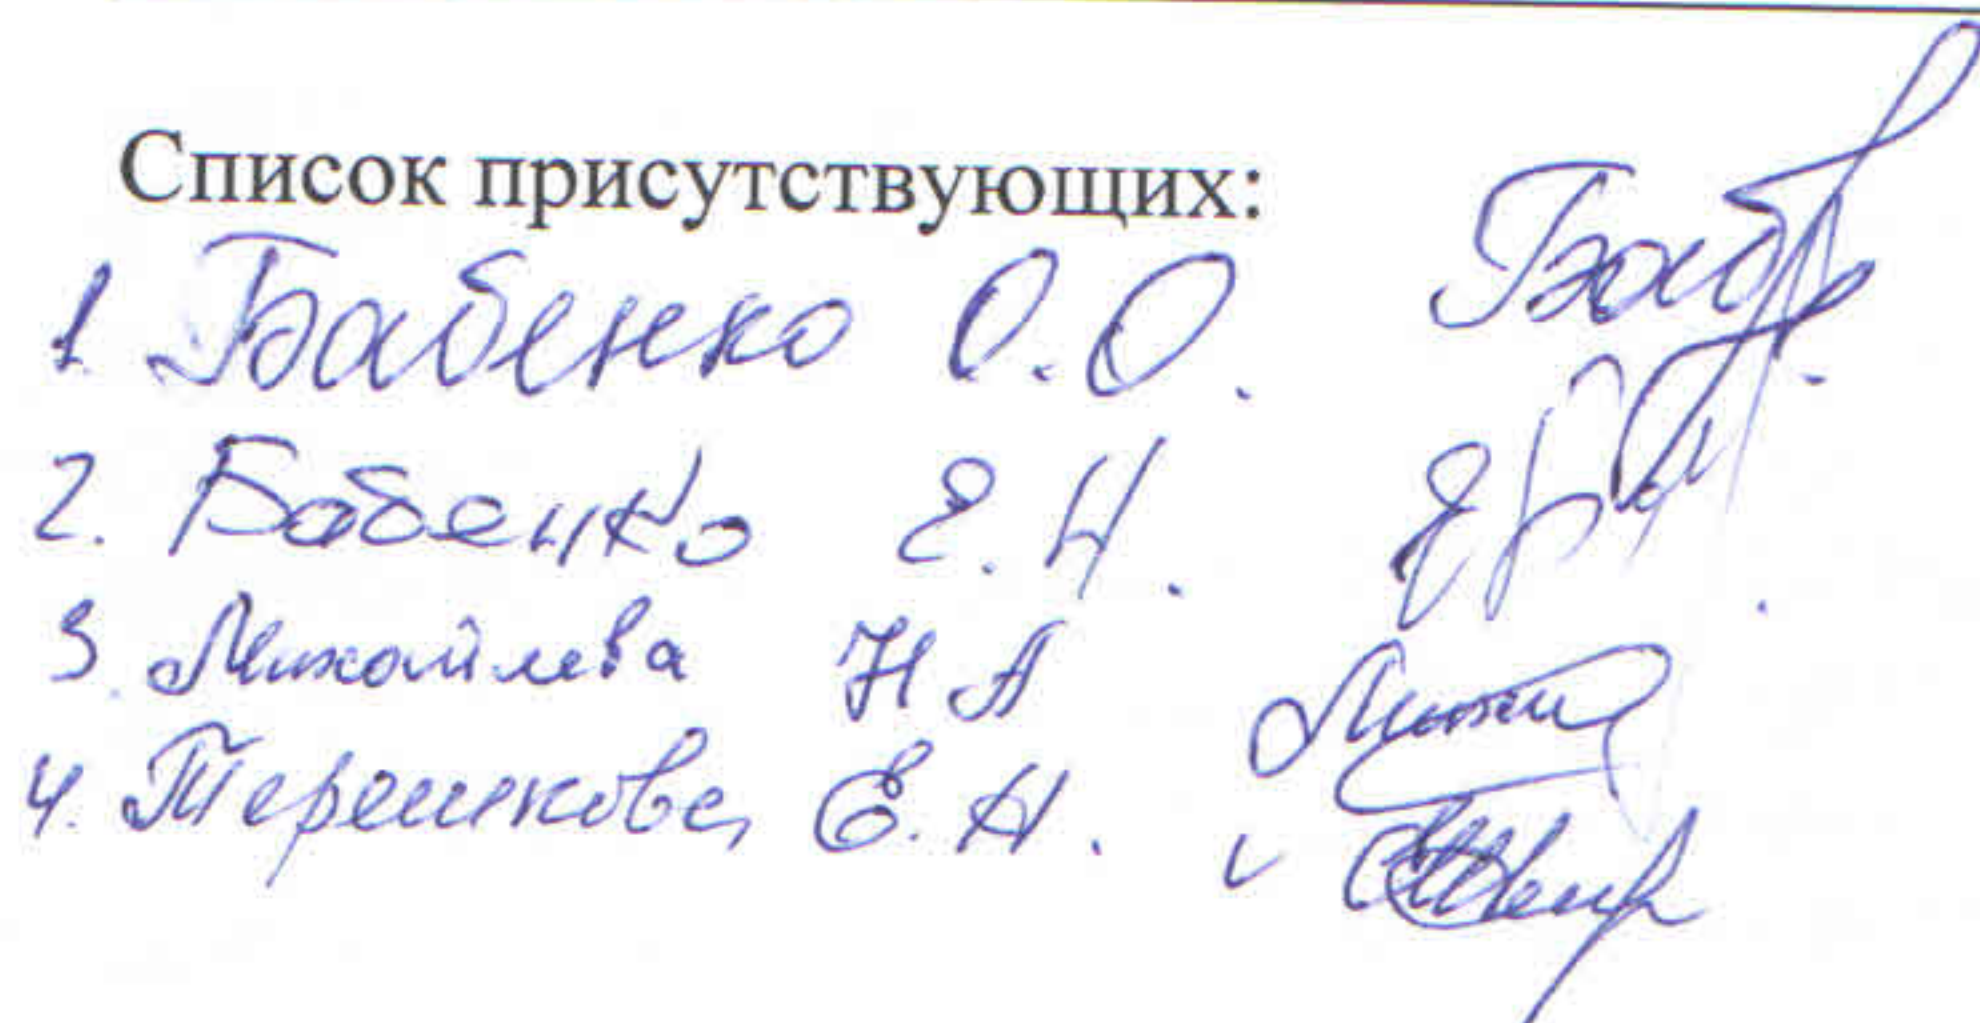 Список присутствующих:
1. Бабенко О.О.
2. Бабенко Е.Н.
3. Михайлова Н А
4. Терешкова Е.Н.